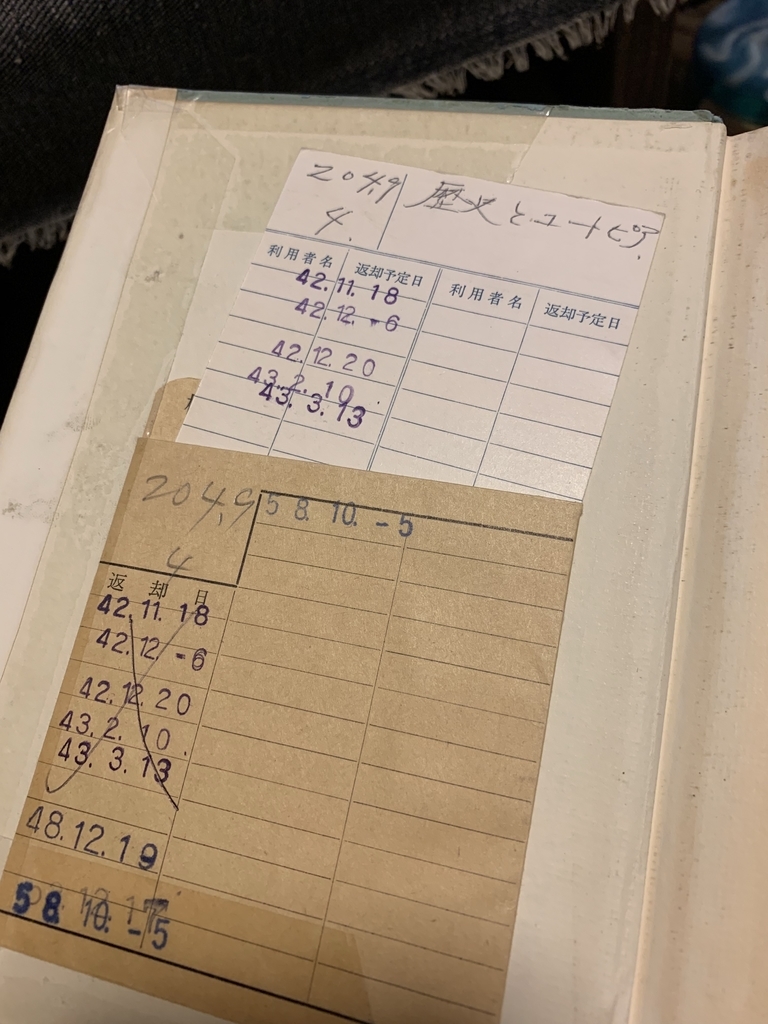 204.9 歴史とユートピア.
4.
利用者名 返却予定日 利用者名 返却予定日
42. 11. 18
42. 12. -6
42. 12. 20
43. 2. 10.
43. 3. 13
204.9
4
58. 10. -5
返却日
42. 11. 18
42. 12 -6
42. 12. 20
43. 2. 10.
43. 3. 13
48. 12. 19
58. 10. -5